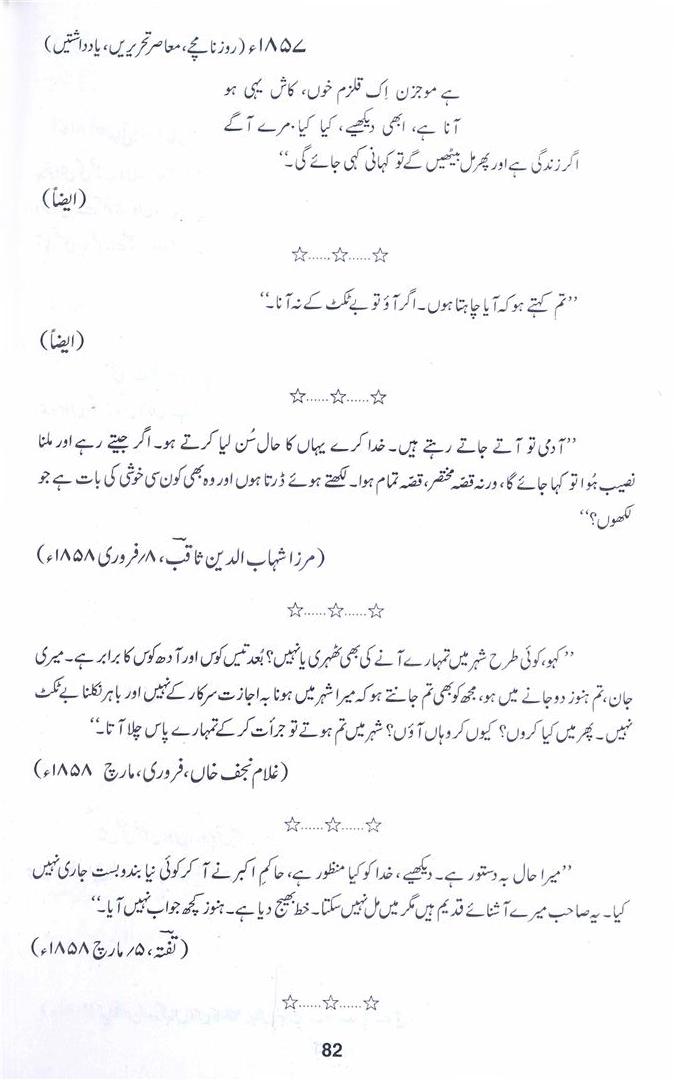 ۱۸۵۷ء (روزنامچے، معاصر تحریریں، یادداشتیں)
ہے موجزن اِک قلزم خوں، کاش یہی ہو
آتا ہے، ابھی دیکھیے، کیا کیا مرے آگے
اگر زندگی ہے اور پھر مل بیٹھیں گے تو کہانی کہی جائے گی۔‘‘
(ایضاً)
☆......☆......☆
’’تم کہتے ہو کہ آیا چاہتا ہوں۔ اگر آؤ تو بے ٹکٹ کے نہ آنا۔‘‘
(ایضاً)
☆......☆......☆
’’آدمی تو آتے جاتے رہتے ہیں۔ خدا کرے یہاں کا حال سُن لیا کرتے ہو۔ اگر جیتے رہے اور ملنا
نصیب ہُوا تو کہا جائے گا، ورنہ قصّہ مختصر، قصّہ تمام ہوا۔ لکھتے ہوئے ڈرتا ہوں اور وہ بھی کون سی خوشی کی بات ہے جو
لکھوں؟‘‘
(مرزا شہاب الدین ثاقب، ۸/فروری ۱۸۵۸ء)
☆......☆......☆
’’کہو، کوئی طرح شہر میں تمہارے آنے کی بھی ٹھہری یا نہیں؟ بُعد تیس کوس اور آدھ کوس کا برابر ہے۔ میری
جان، تم ہنوز دوجانے میں ہو، مجھ کو بھی تم جانتے ہو کہ میرا شہر میں ہونا بہ اجازت سرکار کے نہیں اور باہر نکلنا بے ٹکٹ
نہیں۔ پھر میں کیا کروں؟ کیوں کر وہاں آؤں؟ شہر میں تم ہوتے تو جرأت کر کے تمہارے پاس چلا آتا۔‘‘
(غلام نجف خاں، فروری، مارچ ۱۸۵۸ء)
☆......☆......☆
’’میرا حال بہ دستور ہے۔ دیکھیے، خدا کو کیا منظور ہے، حاکمِ اکبر نے آ کر کوئی نیا بندوبست جاری نہیں
کیا۔ یہ صاحب میرے آشنائے قدیم ہیں مگر میں مل نہیں سکتا۔ خط بھیج دیا ہے۔ ہنوز کچھ جواب نہیں آیا۔‘‘
(تفتہ، ۵/مارچ ۱۸۵۸ء)
☆......☆......☆
82